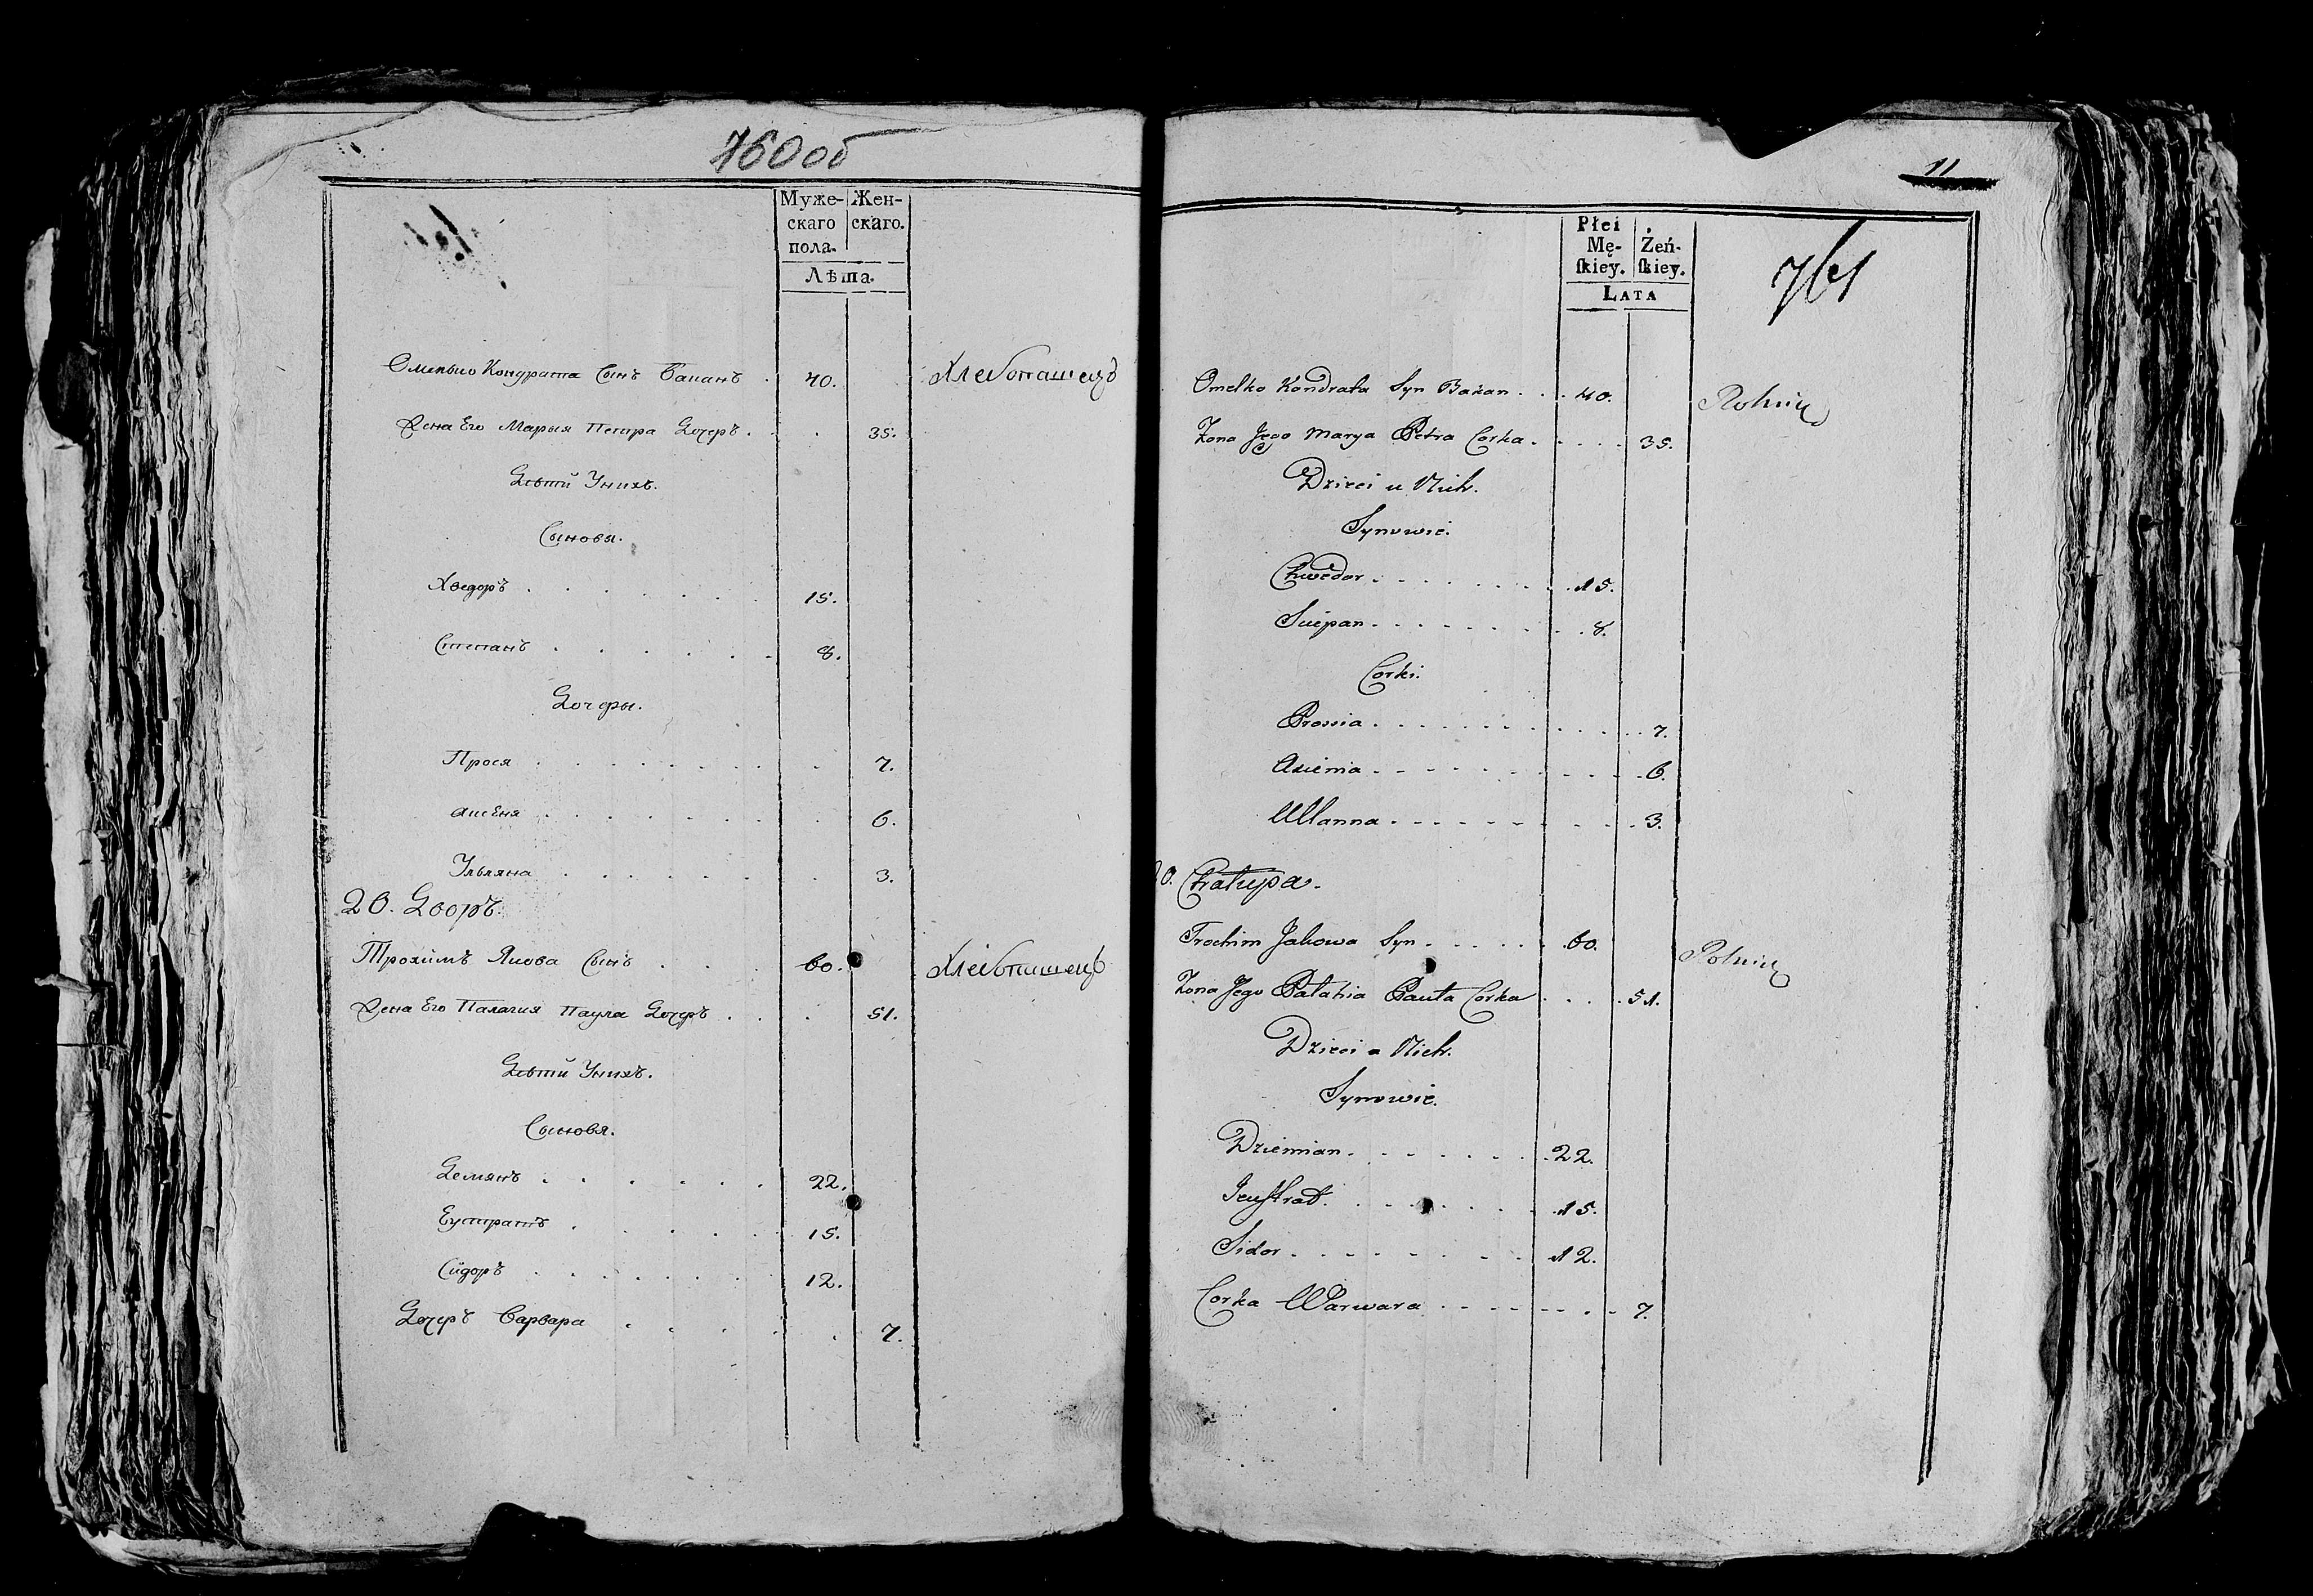 760об
Муже- Жен-
скаго скаго.
пола.
Лѣта.
Омелько Кондрата Сынъ Бажанъ . 40. Хлебопашецъ
Жена Его Марыя Петра Дочеръ . . . 35.
Дѣтй Унихъ.
Сыновя.
Хведоръ . . . . . . . 15.
Степанъ . . . . . . 8.
Дочеры.
Прося . . . . . . . . 7.
аксѣня . . . . . . . . 6.
Ульяна . . . . . . . 3.
20. Дворъ.
Трохимъ Якова Сынъ . . . 60. Хлебопашецъ
Жена Его Палагия Паула Дочеръ . . . 51.
Дѣтй Унихъ.
Сыновя.
Демянъ . . . . . . 22.
Еустратъ . . . . . 15.
Сйдоръ . . . . . . . 12.
Дочеръ Варвара . . . . . 7.
11
761
Płci
Mę- Żeń-
ſkiey. ſkiey.
LATA
Omelko Kondrata Syn Bażan . . . 40. Rolnik
Żona Jego Marya Petra Corka . . . . . 35.
Dzieci u Nich.
Synowie.
Chwedor . . . . . . . . 15.
Sciepan . . . . . . . . 8.
Corki.
Prosia . . . . . . . . . . . 7.
Axienia . . . . . . . . . . 6.
Ullanna . . . . . . . . . . 3.
20. Chałupa.
Trochim Jakowa Syn . . . . . 60. Rolnik
Żona Jego Pałahia Pauła Corka . . . . 51.
Dzieci u Nich.
Synowie.
Dziemian . . . . . . . 22.
Jeuſtrat . . . . . . . 15.
Sidor . . . . . . . . 12.
Corka Warwara . . . . . . . . 7.